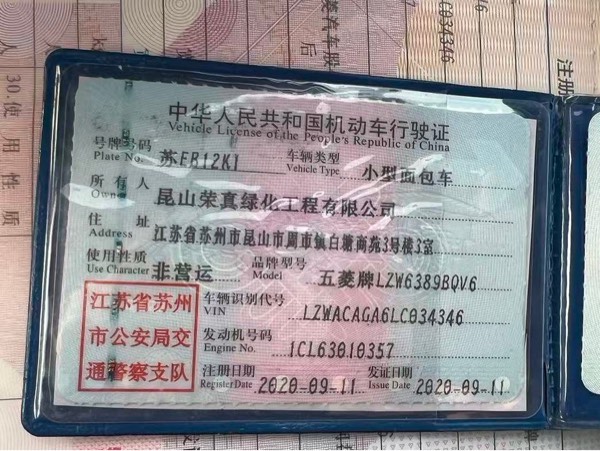 C034346
菱汽车股
后
注册
30.使用性质
中华人民共和国机动车行驶证
Vehicle License of the People's Republic of China
号牌号码 苏FR12K1 车辆类型 小型面包车
Plate No. Vehicle Type
所有人 昆山荣真绿化工程有限公司
Owner
住址 江苏省苏州市昆山市周市镇白塘商苑3号楼3室
Address
使用性质 非营运 品牌型号 五菱牌LZW6389BQV6
Use Character Model
江苏省苏州
市公安局交
通警察支队
车辆识别代号 LZWACAGA6LC034346
VIN
发动机号码 1CL63010357
Engine No.
注册日期 2020-09-11 发证日期 2020-09-11
Register Date Issue Date